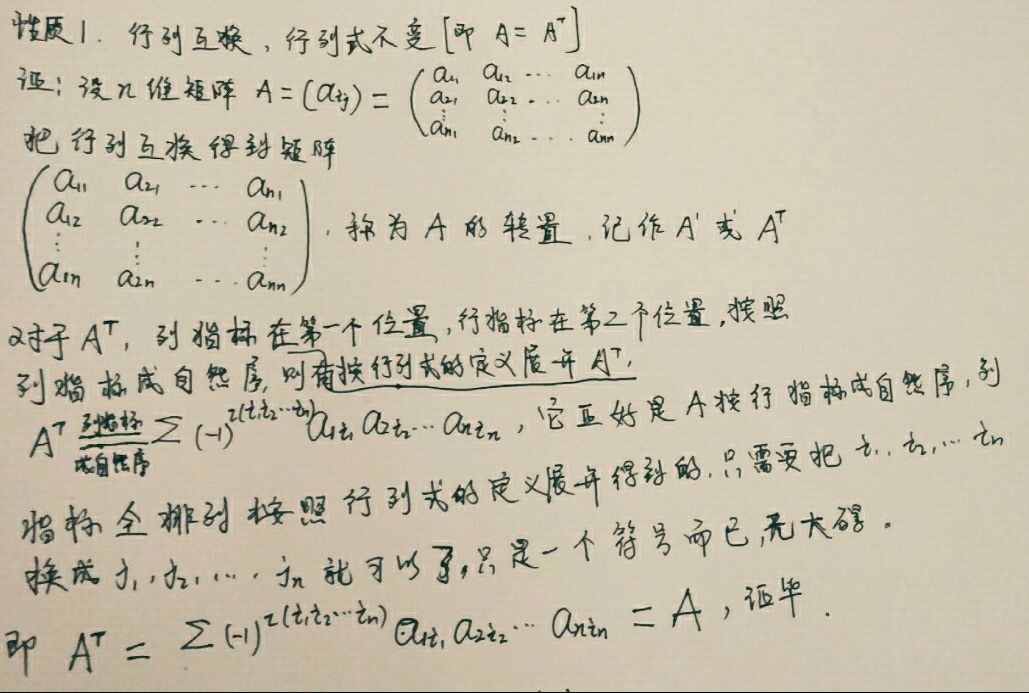 性质1. 行列互换，行列式不变[即 A = Aᵀ]
证：设n维矩阵 A = (aᵢⱼ) = ( a₁₁ a₁₂ ⋯ a₁ₙ
a₂₁ a₂₂ ⋯ a₂ₙ
⋮ ⋮ ⋮
aₙ₁ aₙ₂ ⋯ aₙₙ )
把行列互换得到矩阵
( a₁₁ a₂₁ ⋯ aₙ₁
a₁₂ a₂₂ ⋯ aₙ₂
⋮ ⋮ ⋮
a₁ₙ a₂ₙ ⋯ aₙₙ ) ，称为A的转置，记作A'或Aᵀ
对于Aᵀ，列指标在第一个位置，行指标在第二个位置，按照
列指标成自然序，则按行列式的定义展开Aᵀ，
Aᵀ =(列指标成自然序)= Σ(-1)^τ(i₁i₂⋯iₙ) a₁ᵢ₁ a₂ᵢ₂ ⋯ aₙᵢₙ，它正好是A按行指标成自然序，列
指标全排列按照行列式的定义展开得到的，只需要把 i₁, i₂, ⋯ iₙ
换成 j₁, j₂, ⋯, jₙ 就可以了，只是一个符号而已，无大碍。
即 Aᵀ = Σ(-1)^τ(i₁i₂⋯iₙ) a₁ᵢ₁ a₂ᵢ₂ ⋯ aₙᵢₙ = A，证毕.